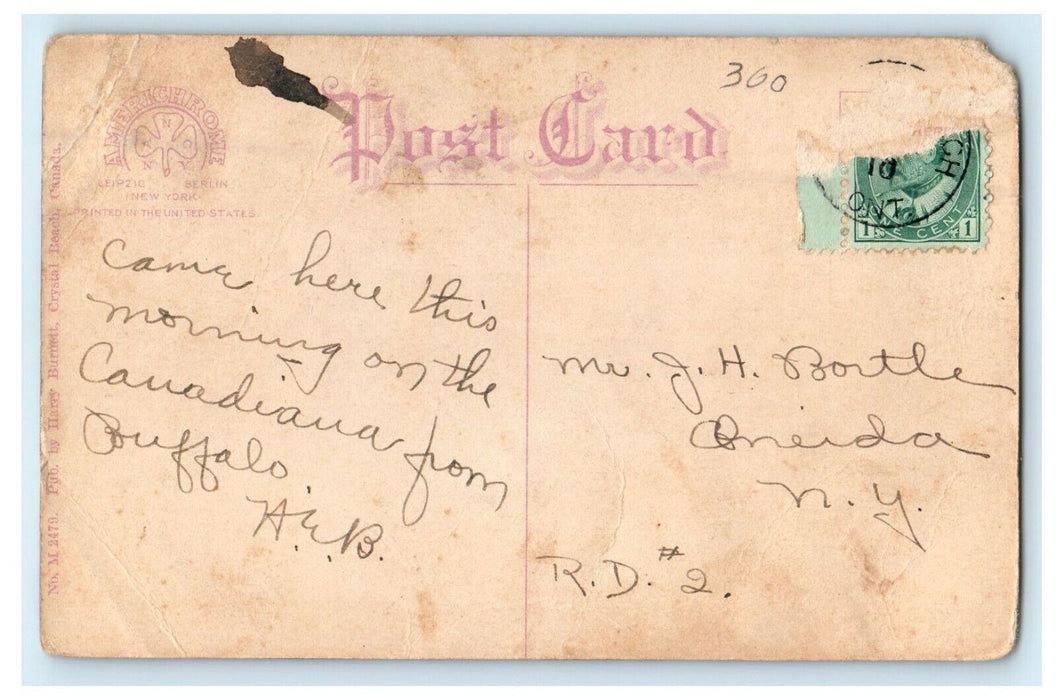 360
AMERICHROME
A N N Y
LEIPZIG BERLIN
NEW YORK
PRINTED IN THE UNITED STATES
Post Card
CH
10
ONT
1 ONE CENT 1
No. M 2479. Pub. by Harry Burnett, Crystal Beach, Canada.
Came here this
morning on the
Canadiana from
Buffalo.
H.E.B.
Mr. J. H. Bortle
Oneida
N. Y.
R.D. #2.